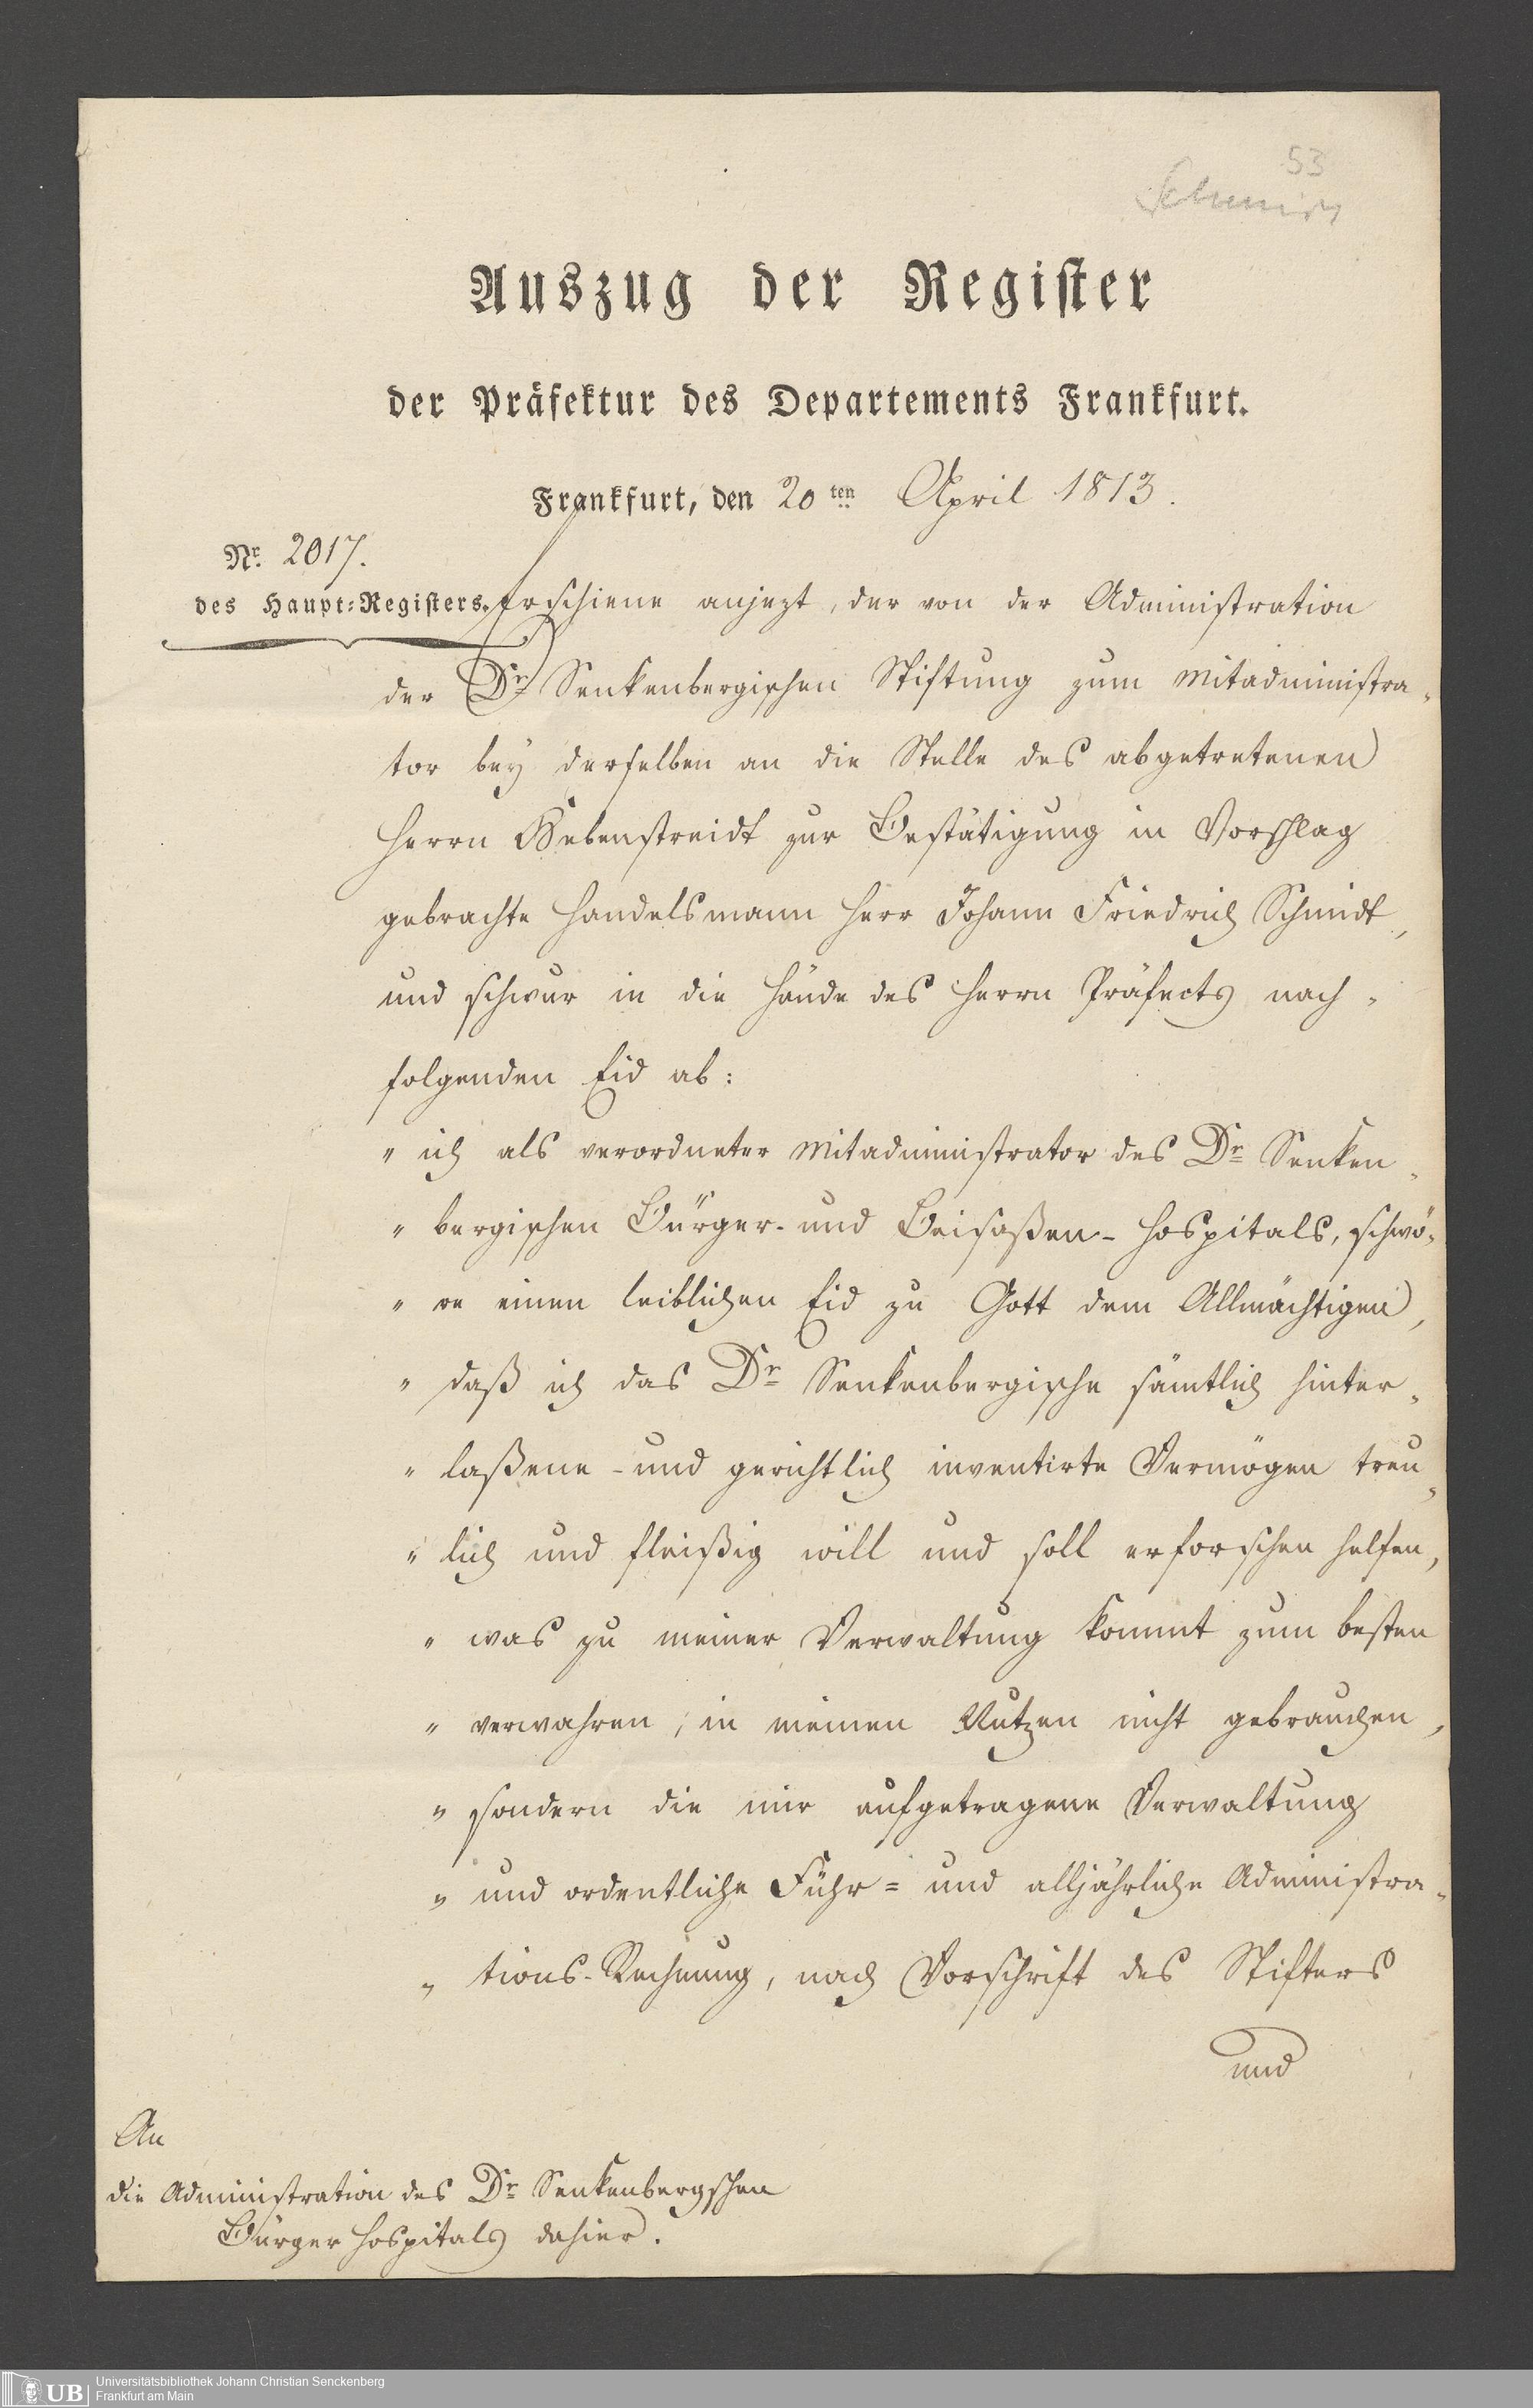 53
Schmidt
Auszug der Register
der Präfektur des Departements Frankfurt.
Frankfurt, den 20ten April 1813.
Nr. 2017.
des Haupt-Registers.
Erschiene anjezt, der von der Administration
der Dr Senkenbergischen Stiftung zum Mitadministra-
tor bey derselben an die Stelle des abgetretenen
Herrn Hebenstreidt zur Bestätigung in Vorschlag
gebrachte Handelsmann Herr Johann Friedrich Schmidt,
und schwur in die Hände des Herrn Präfects nach-
folgenden Eid ab:
" ich als verordneter Mitadministrator des Dr Senken-
" bergischen Bürger- und Beisaßen-Hospitals, schwö-
" re einen leiblichen Eid zu Gott dem Allmächtigen,
" daß ich das Dr Senkenbergische sämtlich hinter-
" laßene - und gerichtlich inventirte Vermögen treu-
" lich und fleißig will und soll erforschen helfen,
" was zu meiner Verwaltung kommt zum besten
" verwahren, in meinen Nutzen nicht gebrauchen,
" sondern die mir aufgetragene Verwaltung
" und ordentliche Führ- und alljährliche Administra-
" tions-Rechnung, nach Vorschrift des Stifters
und
An
die Administration des Dr Senkenbergschen
Bürger Hospitals dahier.
UB
Universitätsbibliothek Johann Christian Senckenberg
Frankfurt am Main